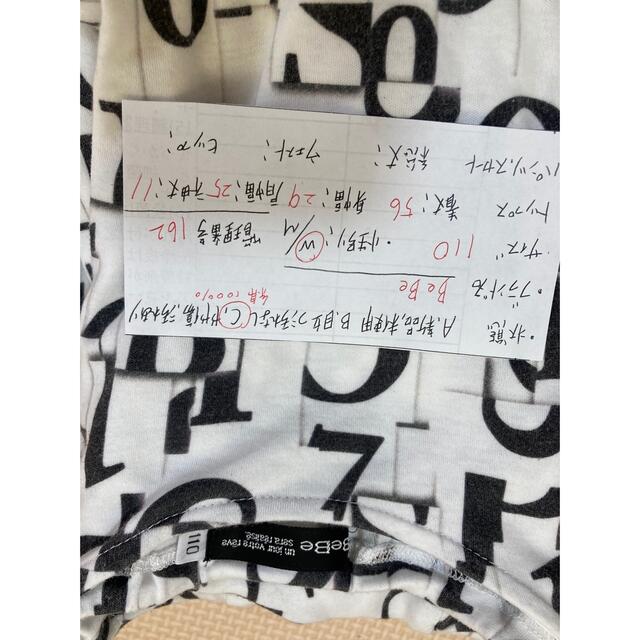 ・状態 A.新品,未使用 B.目立つ汚れなし C.やや傷,汚れあり
綿100%
・ブランド名 BeBe
・サイズ 110 ・性別; W/M 管理番号 162
トップス 着丈; 56 身幅; 29 肩幅; 25 袖丈; 11
パンツ,スカート 総丈; ウエスト; ヒップ;
BeBe
un jour votre rêve
sera réalisé.
110